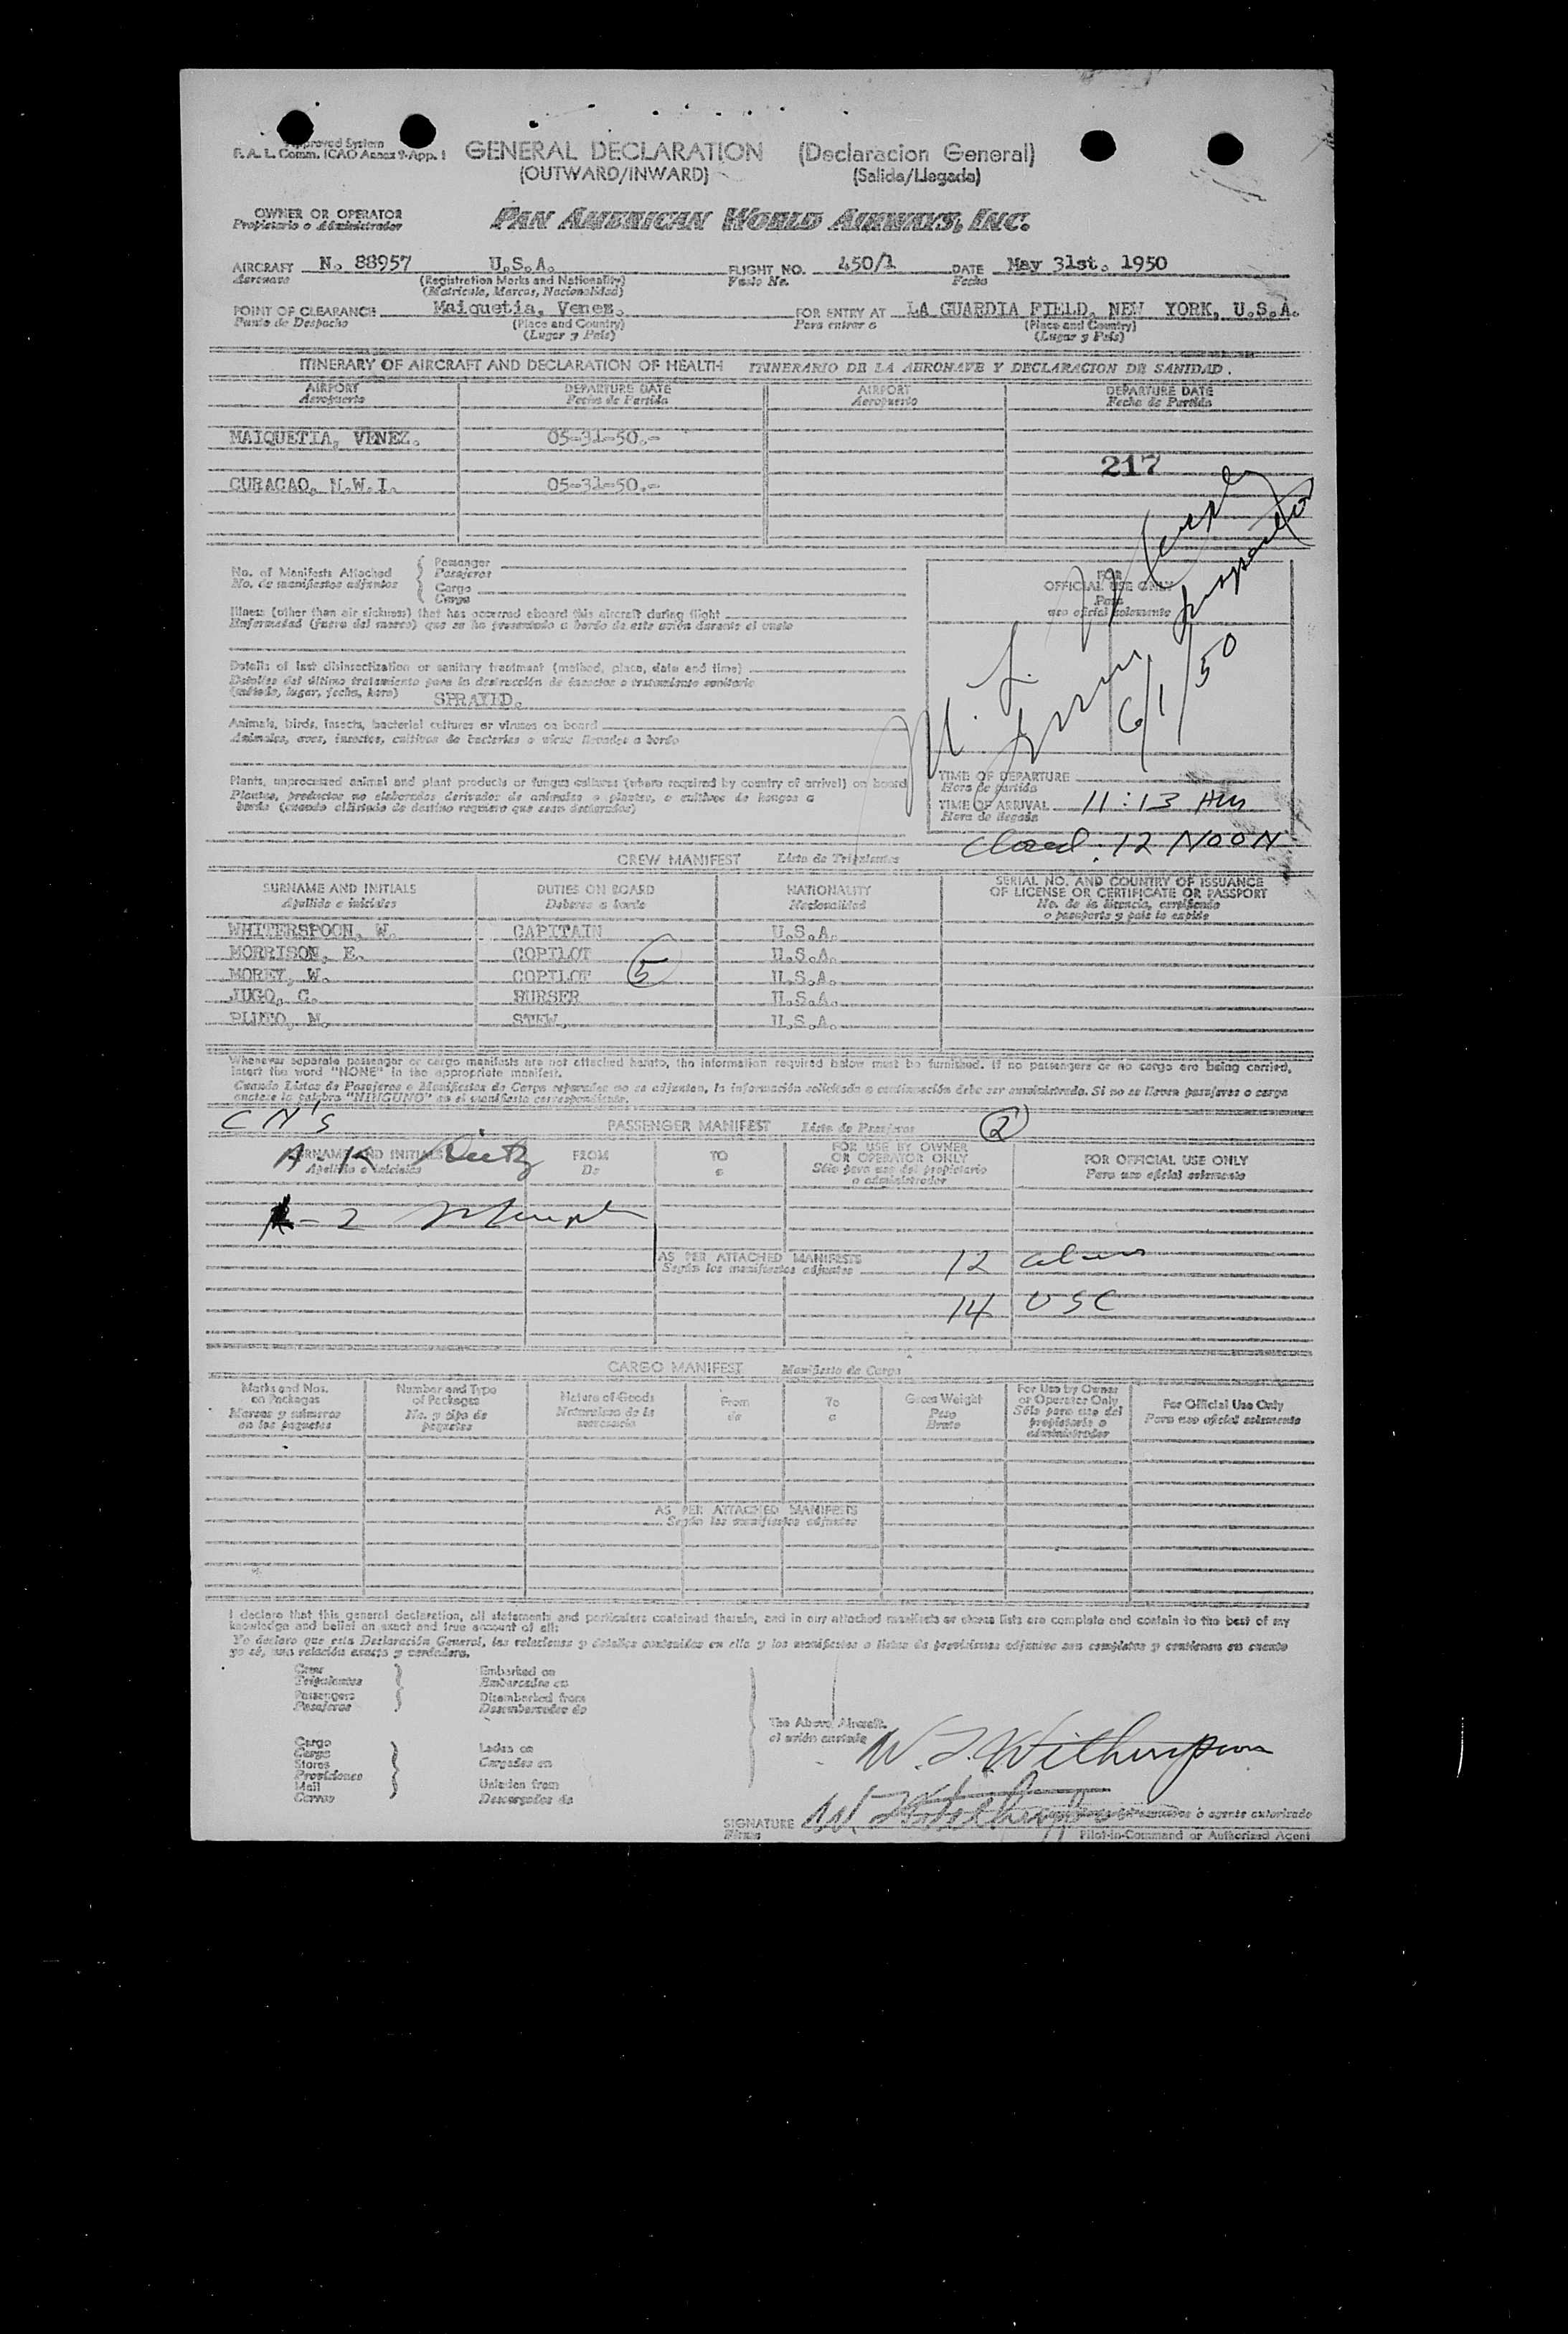 Approved System
F. A. L. Comm. ICAO Annex 9-App. 1
GENERAL DECLARATION (Declaracion General)
(OUTWARD/INWARD) (Salida/Llegada)
OWNER OR OPERATOR
Propietario o Administrador
PAN AMERICAN WORLD AIRWAYS, INC.
AIRCRAFT N. 88957 U.S.A. FLIGHT NO. 450/1 DATE May 31st. 1950
Aeronave (Registration Marks and Nationality) Vuelo No. Fecha
(Matricula, Marcas, Nacionalidad)
POINT OF CLEARANCE Maiquetia, Venez. FOR ENTRY AT LA GUARDIA FIELD, NEW YORK, U.S.A.
Punto de Despacho (Place and Country) Para entrar a (Place and Country)
(Lugar y País) (Lugar y País)
ITINERARY OF AIRCRAFT AND DECLARATION OF HEALTH ITINERARIO DE LA AERONAVE Y DECLARACION DE SANIDAD.
AIRPORT DEPARTURE DATE AIRPORT DEPARTURE DATE
Aeropuerto Fecha de Partida Aeropuerto Fecha de Partida
MAIQUETIA, VENEZ. 05-31-50.-
217
CURACAO, N.W.I. 05-31-50.-
No. of Manifests Attached
No. de manifiestos adjuntos
Passenger
Pasajeros
Cargo
Carga
Illness (other than air sickness) that has occurred aboard this aircraft during flight
Enfermedad (fuera del mareo) que se ha presentado a bordo de este avión durante el vuelo
Details of last disinsectization or sanitary treatment (method, place, date and time)
Detalles del último tratamiento para la destrucción de insectos o tratamiento sanitario
(método, lugar, fecha, hora)
SPRAYED.
Animals, birds, insects, bacterial cultures or viruses on board
Animales, aves, insectos, cultivos de bacterias o virus llevados a bordo
Plants, unprocessed animal and plant products or fungus cultures (where required by country of arrival) on board
Plantas, productos no elaborados derivados de animales o plantas, o cultivos de hongos a
bordo (cuando el Estado de destino requiera que sean declarados)
FOR
OFFICIAL USE ONLY
Para
uso oficial solamente
6/1/50
TIME OF DEPARTURE
Hora de partida
TIME OF ARRIVAL 11:13 AM
Hora de llegada
12 NOON
CREW MANIFEST Lista de Tripulantes
SURNAME AND INITIALS DUTIES ON BOARD NATIONALITY SERIAL NO. AND COUNTRY OF ISSUANCE
OF LICENSE OR CERTIFICATE OR PASSPORT
Apellido e iniciales Deberes a bordo Nacionalidad No. de la licencia, certificado
o pasaporte y país lo expide
WHITERSPOON, W. CAPITAIN U.S.A.
MORRISON, E. COPILOT U.S.A.
MOREY, W. COPILOT 5 U.S.A.
JUGO, C. BURSER U.S.A.
PLUTO, N. STEW. U.S.A.
Whenever separate passenger or cargo manifests are not attached hereto, the information required below must be furnished. If no passengers or no cargo are being carried,
insert the word "NONE" in the appropriate manifest.
Cuando Listas de Pasajeros o Manifiestos de Carga separados no se adjunten, la información solicitada a continuación debe ser suministrada. Si no se llevan pasajeros o carga
anótese la palabra "NINGUNO" en el manifiesto correspondiente.
CN's
PASSENGER MANIFEST Lista de Pasajeros 2
SURNAME AND INITIALS FROM TO FOR USE BY OWNER
OR OPERATOR ONLY FOR OFFICIAL USE ONLY
Apellido e iniciales De a Sólo para uso del propietario
o administrador Para uso oficial solamente
AS PER ATTACHED MANIFESTS
Según los manifiestos adjuntos
12 aliens
14 USC
CARGO MANIFEST Manifiesto de Carga
Marks and Nos.
on Packages
Marcas y números
en los paquetes
Number and Type
of Packages
No. y tipo de
paquetes
Nature of Goods
Naturaleza de la
mercancía
From
de
To
a
Gross Weight
Peso
Bruto
For Use by Owner
or Operator Only
Sólo para uso del
propietario o
administrador
For Official Use Only
Para uso oficial solamente
AS PER ATTACHED MANIFESTS
Según los manifiestos adjuntos
I declare that this general declaration, all statements and particulars contained therein, and in any attached manifests or stores lists are complete and contain to the best of my
knowledge and belief an exact and true account of all:
Yo declaro que esta Declaración General, las relaciones y detalles contenidos en ella y los manifiestos o listas de provisiones adjuntos son completos y contienen en cuanto
yo sé, una relación exacta y verdadera.
Crew
Tripulantes
Passengers
Pasajeros
Embarked on
Embarcados en
Disembarked from
Desembarcados de
Cargo
Carga
Stores
Provisiones
Mail
Correo
Laden on
Cargados en
Unladen from
Descargados de
The Above Aircraft.
el avión anotado
W. Witherspoon
SIGNATURE
Firma
o agente autorizado
Pilot-in-Command or Authorized Agent